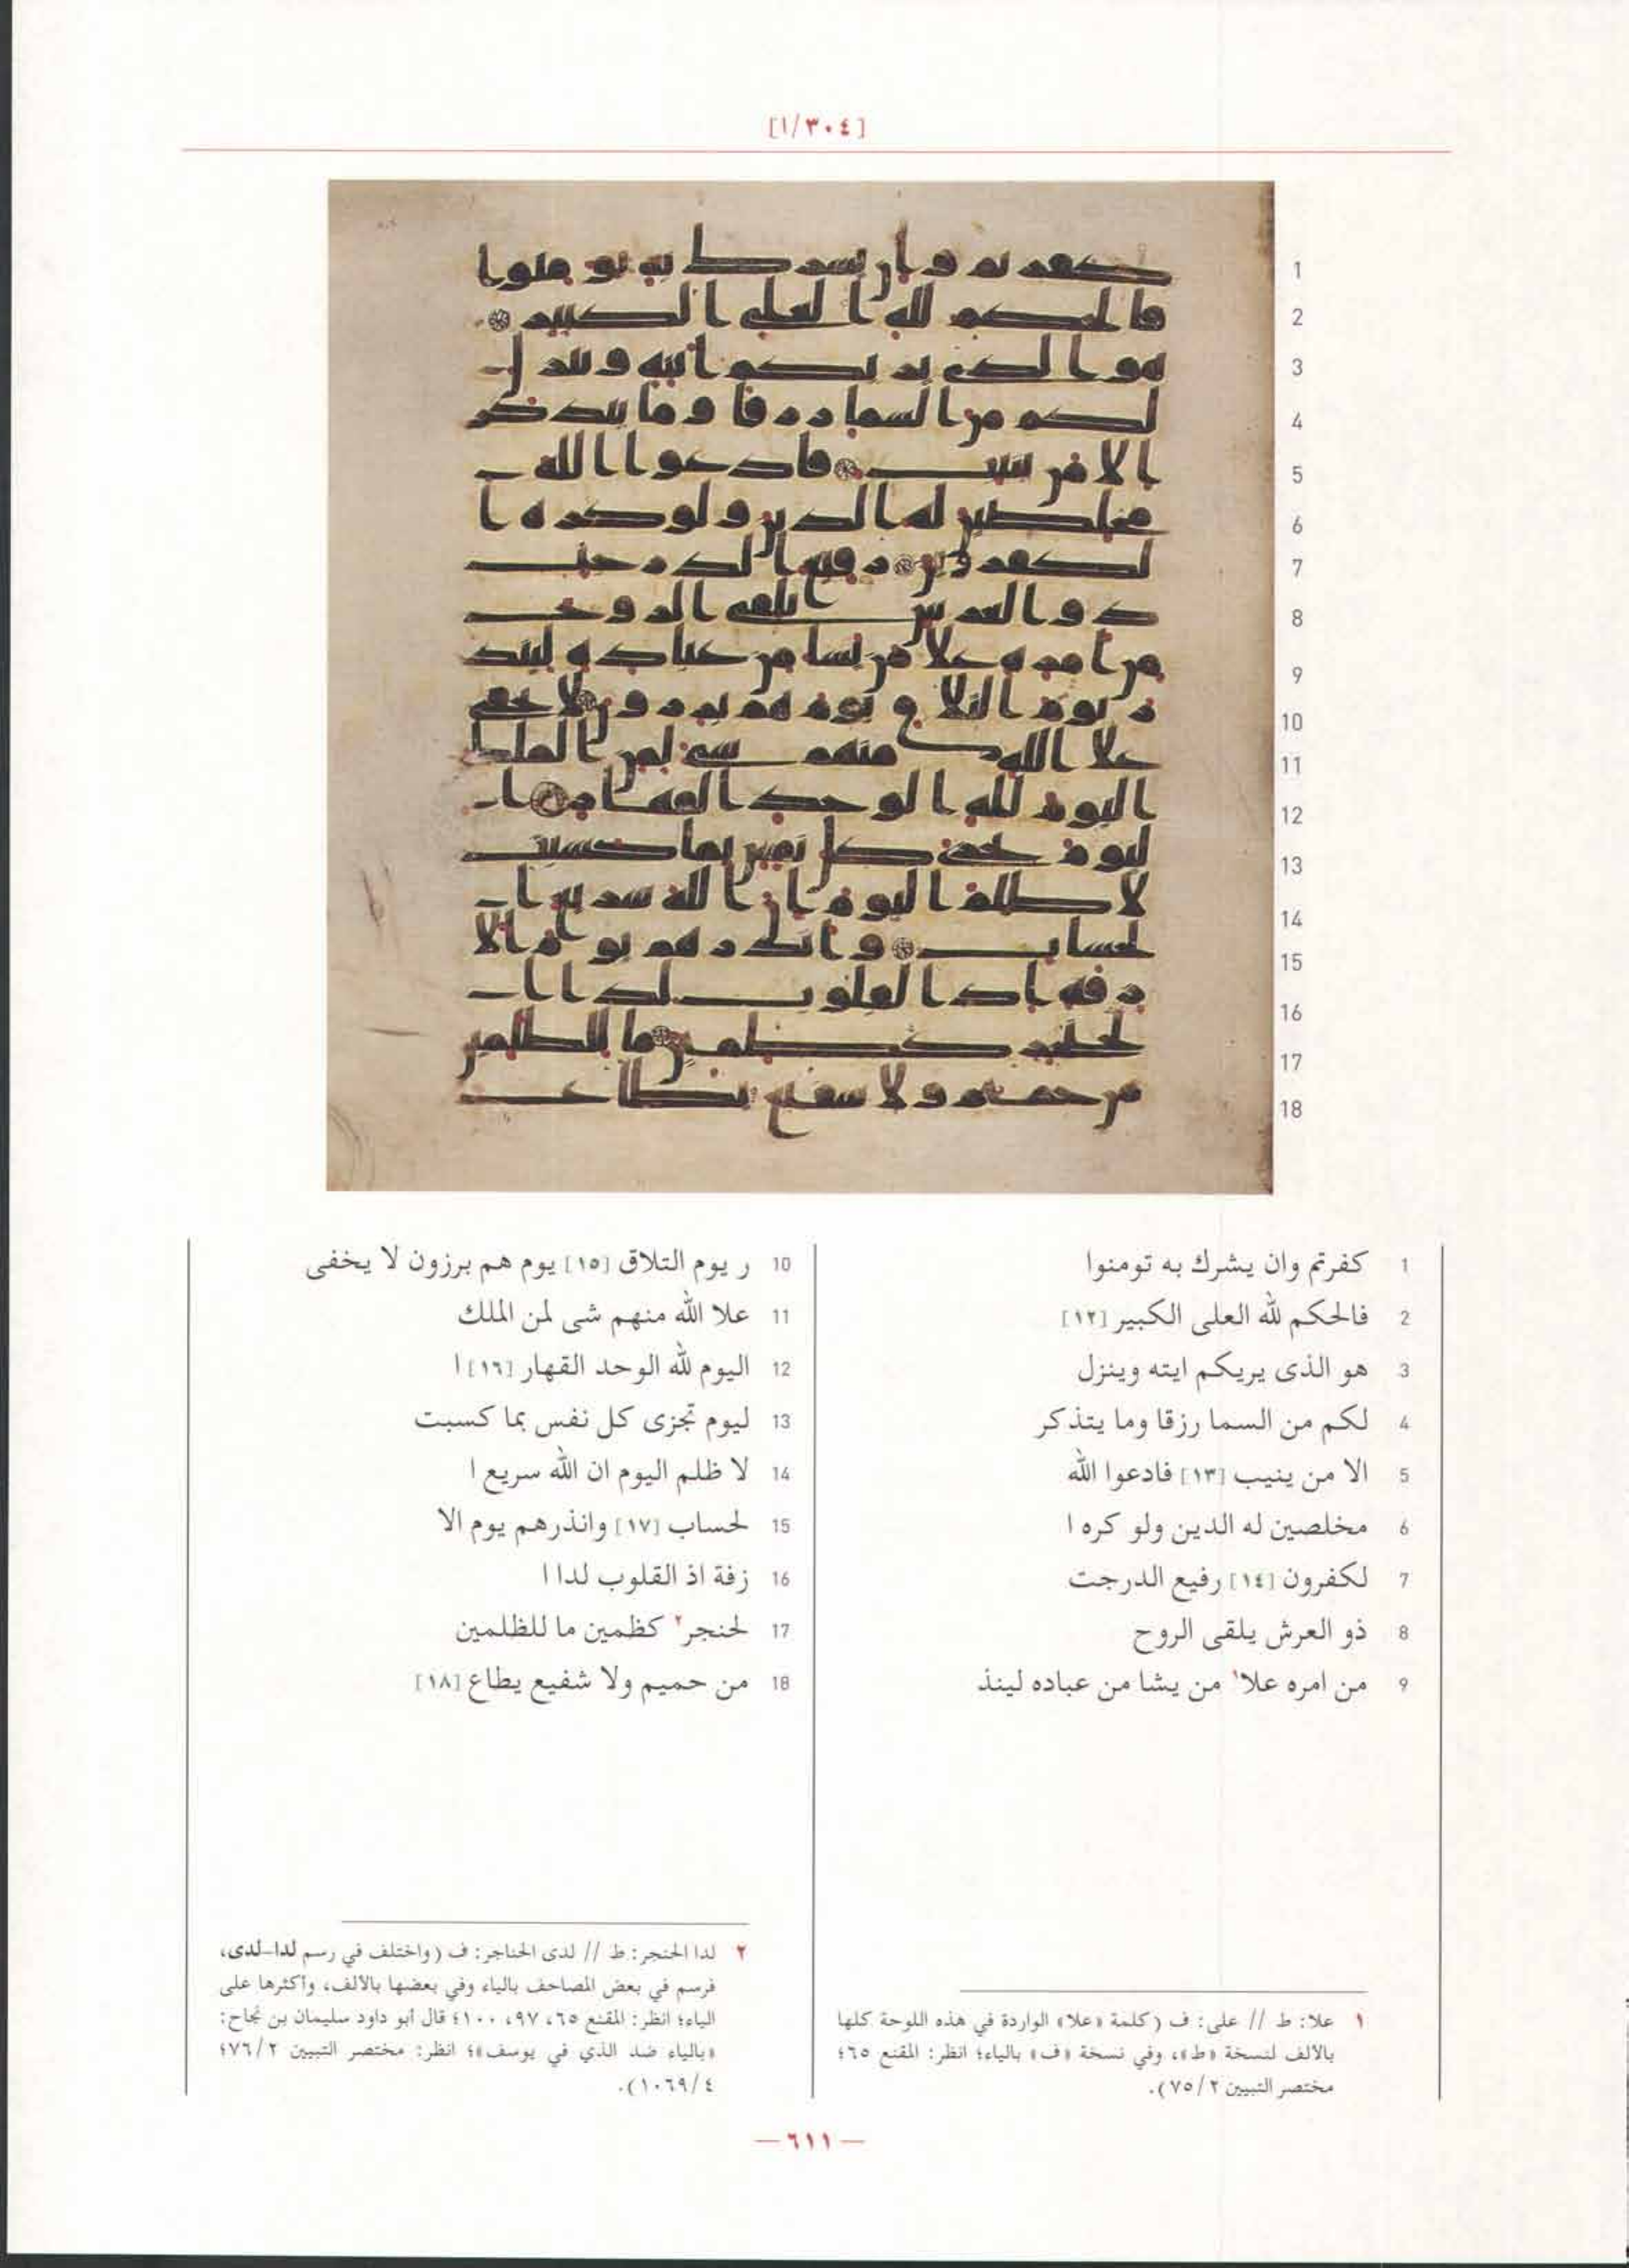 [١/٣٠٤]
1 كفرتم وان يشرك به تومنوا
2 فالحكم لله العلى الكبير [١٢]
3 هو الذى يريكم ايته وينزل
4 لكم من السما رزقا وما يتذكر
5 الا من ينيب [١٣] فادعوا الله
6 مخلصين له الدين ولو كره ا
7 لكفرون [١٤] رفيع الدرجت
8 ذو العرش يلقى الروح
9 من امره علا١ من يشا من عباده لينذ
10 ر يوم التلاق [١٥] يوم هم برزون لا يخفى
11 علا الله منهم شى لمن الملك
12 اليوم لله الوحد القهار [١٦] ا
13 ليوم تجزى كل نفس بما كسبت
14 لا ظلم اليوم ان الله سريع ا
15 لحساب [١٧] وانذرهم يوم الا
16 زفة اذ القلوب لدا ا
17 لحنجر٢ كظمين ما للظلمين
18 من حميم ولا شفيع يطاع [١٨]
١ علا: ط // على: ف (كلمة «علا» الواردة في هذه اللوحة كلها
بالألف لنسخة «ط»، وفي نسخة «ف» بالياء؛ انظر: المقنع ٦٥؛
مختصر التبيين ٧٥/٢).
٢ لدا الحنجر: ط // لدى الحناجر: ف (واختلف في رسم لدا-لدى،
فرسم في بعض المصاحف بالياء وفي بعضها بالألف، وأكثرها على
الياء؛ انظر: المقنع ٦٥، ٩٧، ١٠٠؛ قال أبو داود سليمان بن نجاح:
«بالياء ضد الذي في يوسف»؛ انظر: مختصر التبيين ٧٦/٢؛
١٠٦٩/٤).
— ٦١١ —